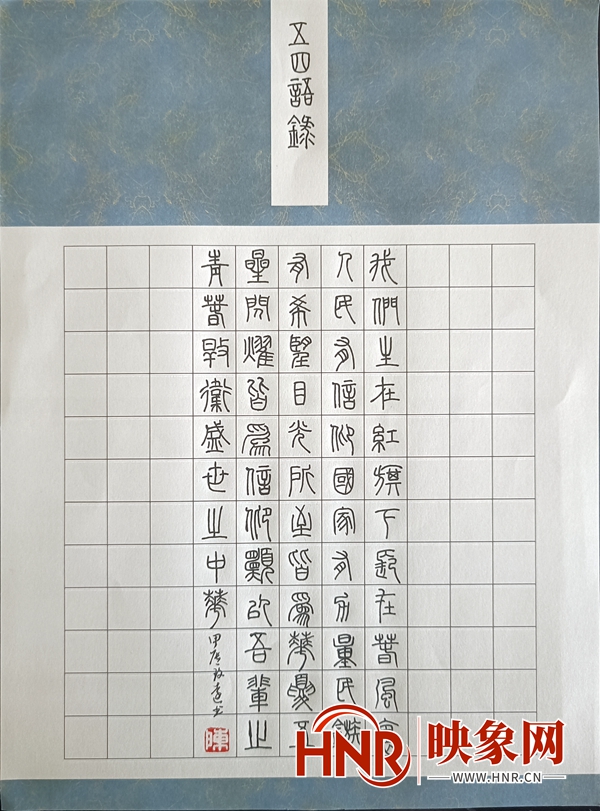 五四語錄
我們生在紅旗下長在春風裏
人民有信仰國家有力量民族
有希望目光所至皆為華夏五
星閃耀皆為信仰願以吾輩之
青春捍衛盛世之中華
甲辰 書
陳
HNR 映象网
WWW.HNR.CN